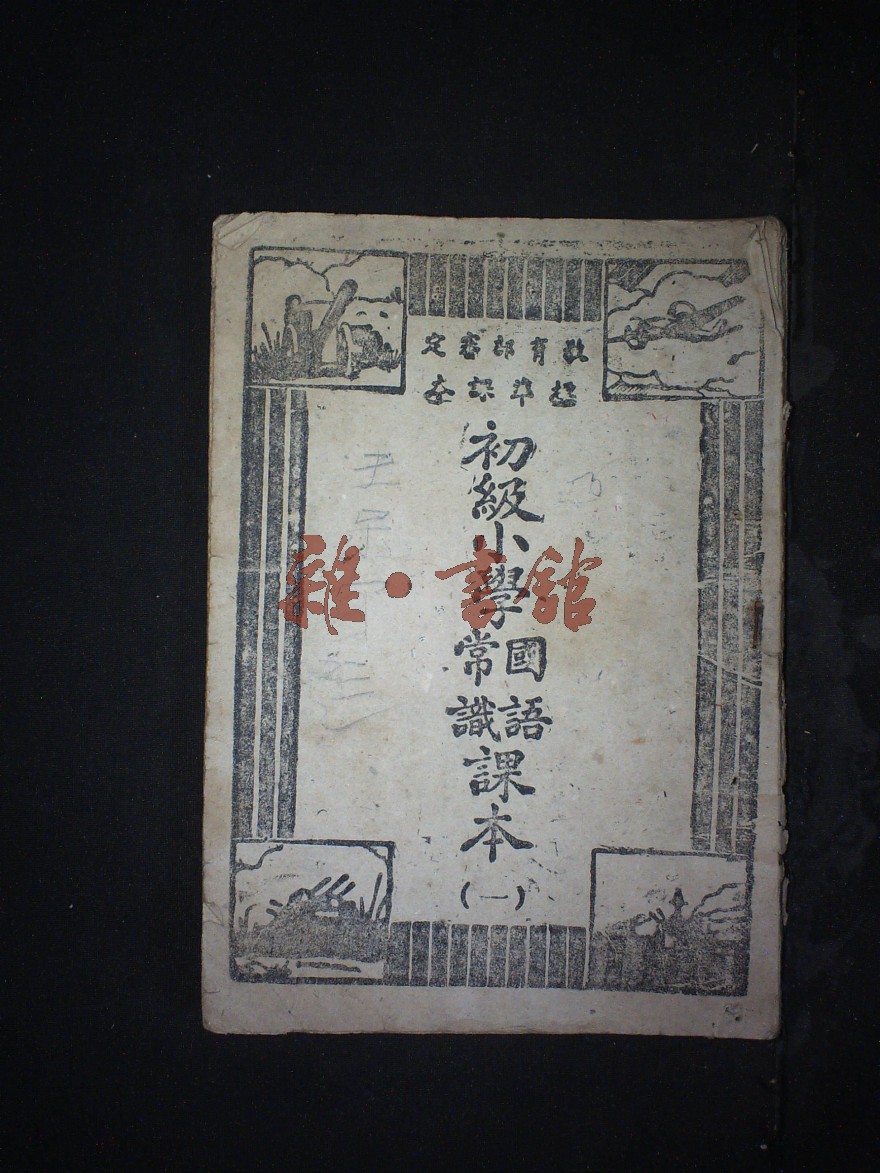 教育部審定
標準課本
初級小學
國語
常識
課本
(一)
雜·書館